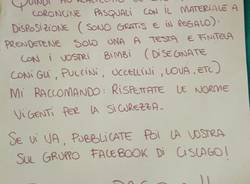 CORONCINE PASQUALI CON IL MATERIALE A
DISPOSIZIONE (SONO GRATIS E IN REGALO).
PRENDETENE SOLO UNA A TESTA E FINITELA
CON I VOSTRI BIMBI (DISEGNATE
CONIGLI, PULCINI, UCCELLINI, UOVA, ETC)
MI RACCOMANDO: RISPETTATE LE NORME
VIGENTI PER LA SICUREZZA.
SE VI VA, PUBBLICATE POI LA VOSTRA
SUL GRUPPO FACEBOOK DI CISLAGO!